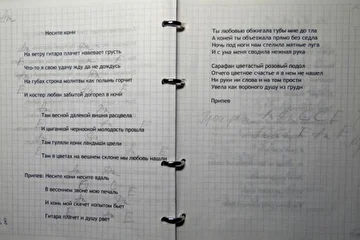 Несите кони
На ветру гитара плачет навевает грусть
Что-то я свою удачу жду да не дождусь
На губах строка молитвы как полынь горчит
И костер любви забытой догорел в ночи
Там весной далекой вишня расцвела
И цыганкой черноокой молодость прошла
Там гуляли кони ландыши цвели
Там в цветах на вешнем склоне мы любовь нашли
Припев: Несите кони несите вдаль
В весеннем звоне мою печаль
И конь мой скачет копытом бьет
Гитара плачет и душу рвет
Ты любовью обжигала губы мне до тла
А коней ты объезжала прямо без седла
Ночь под ноги нам стелила мятные луга
И с ума меня сводила нежная рука
Сарафан цветастый розовый подол
Отчего цветное счастье я в нем не нашел
Ни руки ни слова и на том прости
Увела как вороного душу из груди
Припев